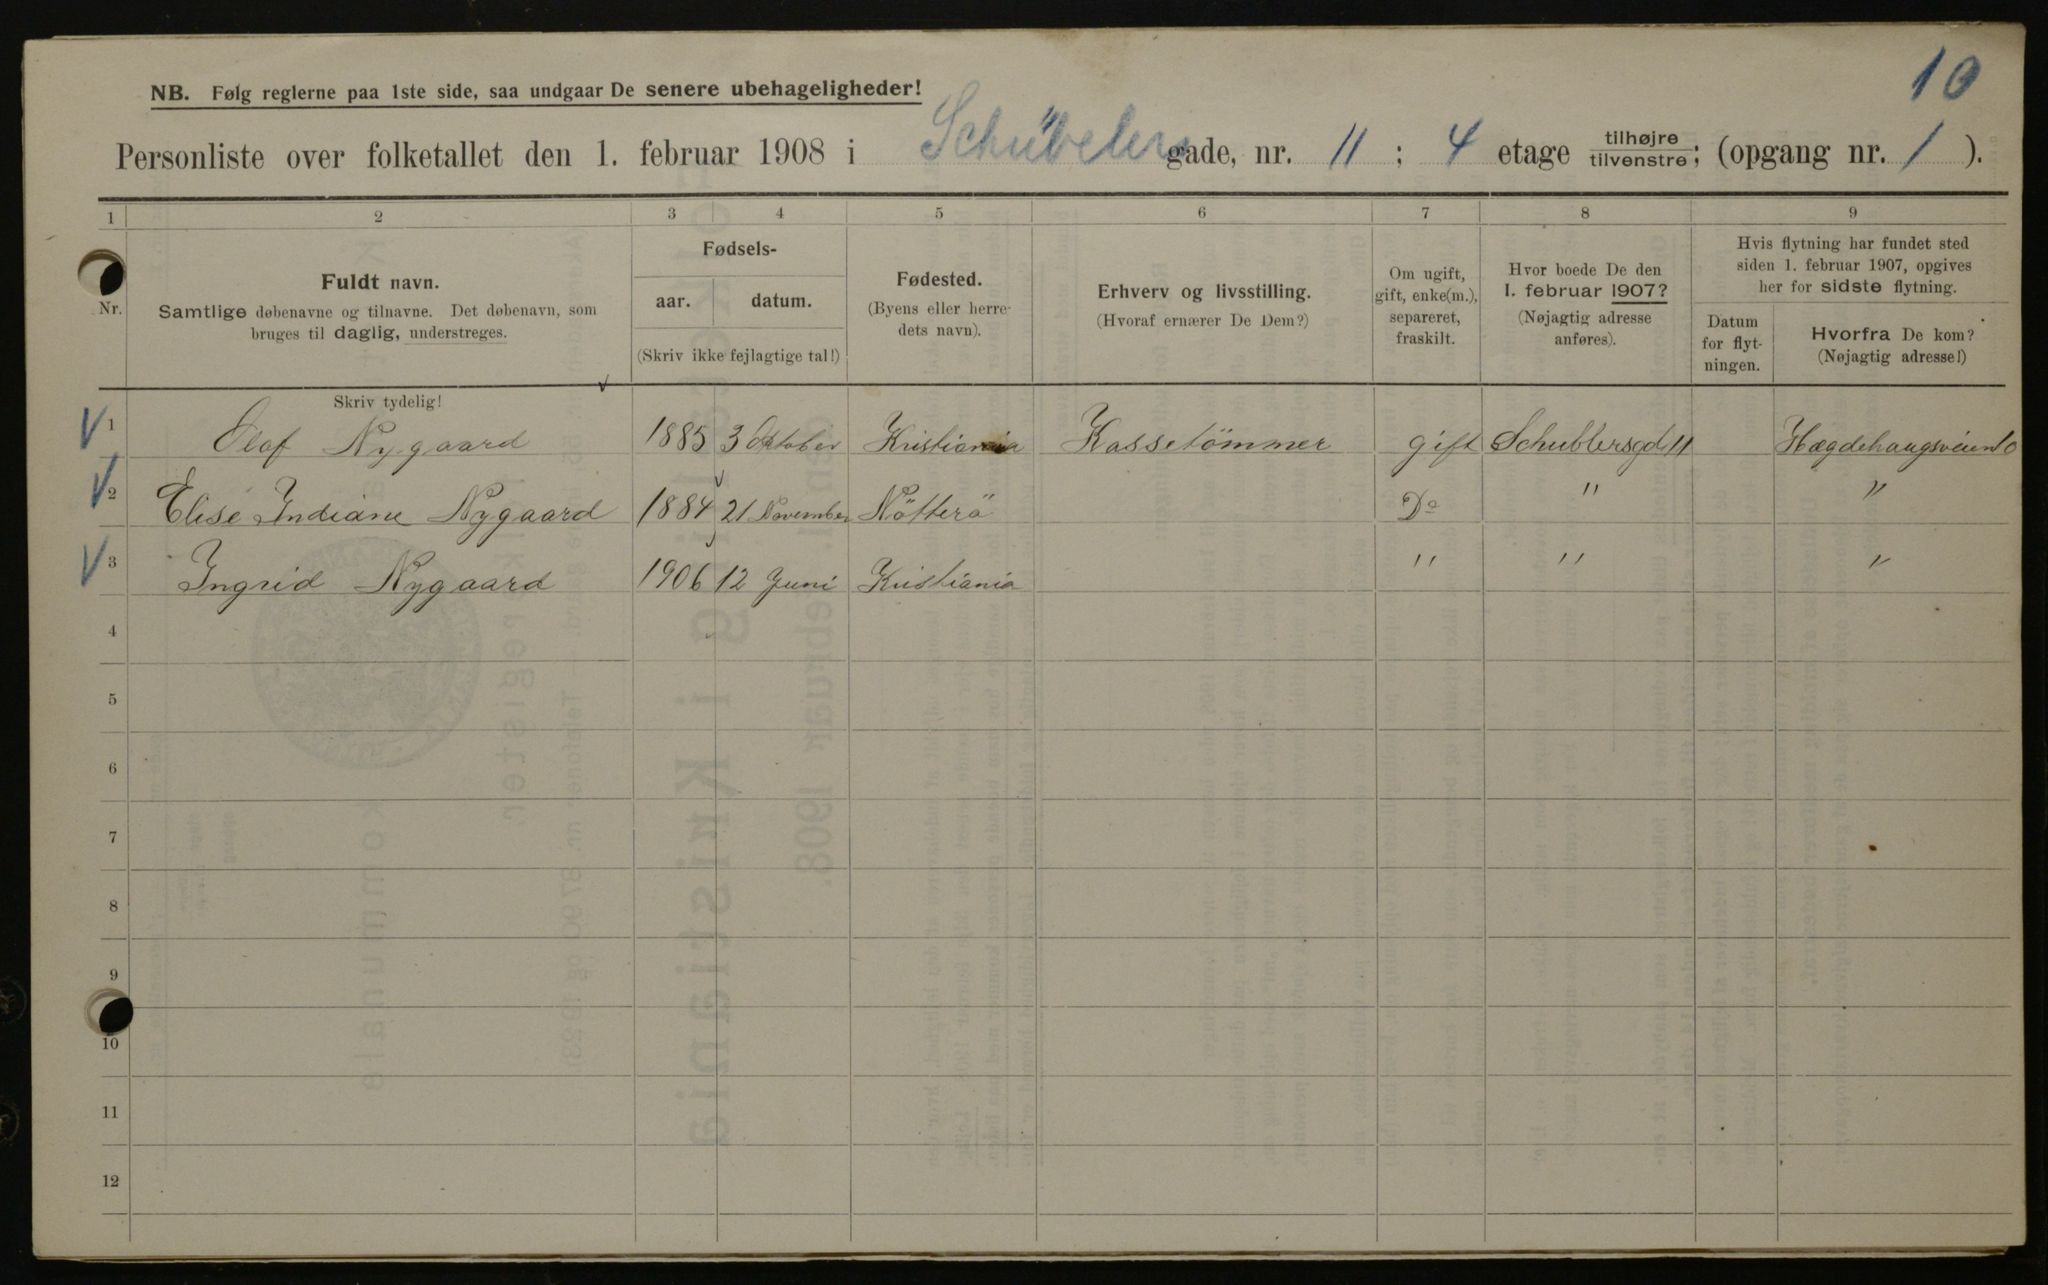 10
NB. Følg reglerne paa 1ste side, saa undgaar De senere ubehageligheder!
Personliste over folketallet den 1. februar 1908 i Schübelers gade, nr. 11 ; 4 etage tilhøjre/tilvenstre; (opgang nr. 1 ).
1 2 3 4 5 6 7 8 9
Nr.
Fuldt navn.
Samtlige døbenavne og tilnavne. Det døbenavn, som
bruges til daglig, understreges.
Fødsels-
aar. datum.
(Skriv ikke fejlagtige tal!)
Fødested.
(Byens eller herre-
dets navn).
Erhverv og livsstilling.
(Hvoraf ernærer De Dem?)
Om ugift,
gift, enke(m.),
separeret,
fraskilt.
Hvor boede De den
1. februar 1907?
(Nøjagtig adresse
anføres).
Hvis flytning har fundet sted
siden 1. februar 1907, opgives
her for sidste flytning.
Datum
for flyt-
ningen.
Hvorfra De kom?
(Nøjagtig adresse!)
Skriv tydelig!
1 Olaf Nygaard 1885 3 Oktober Kristiania Kassetömmer gift Schublersgd 11 Hægdehaugsveien 10
2 Elise Indiane Nygaard 1884 21 November Nötterö Do " "
3 Ingrid Nygaard 1906 12 Juni Kristiania " " "
4
5
6
7
8
9
10
11
12